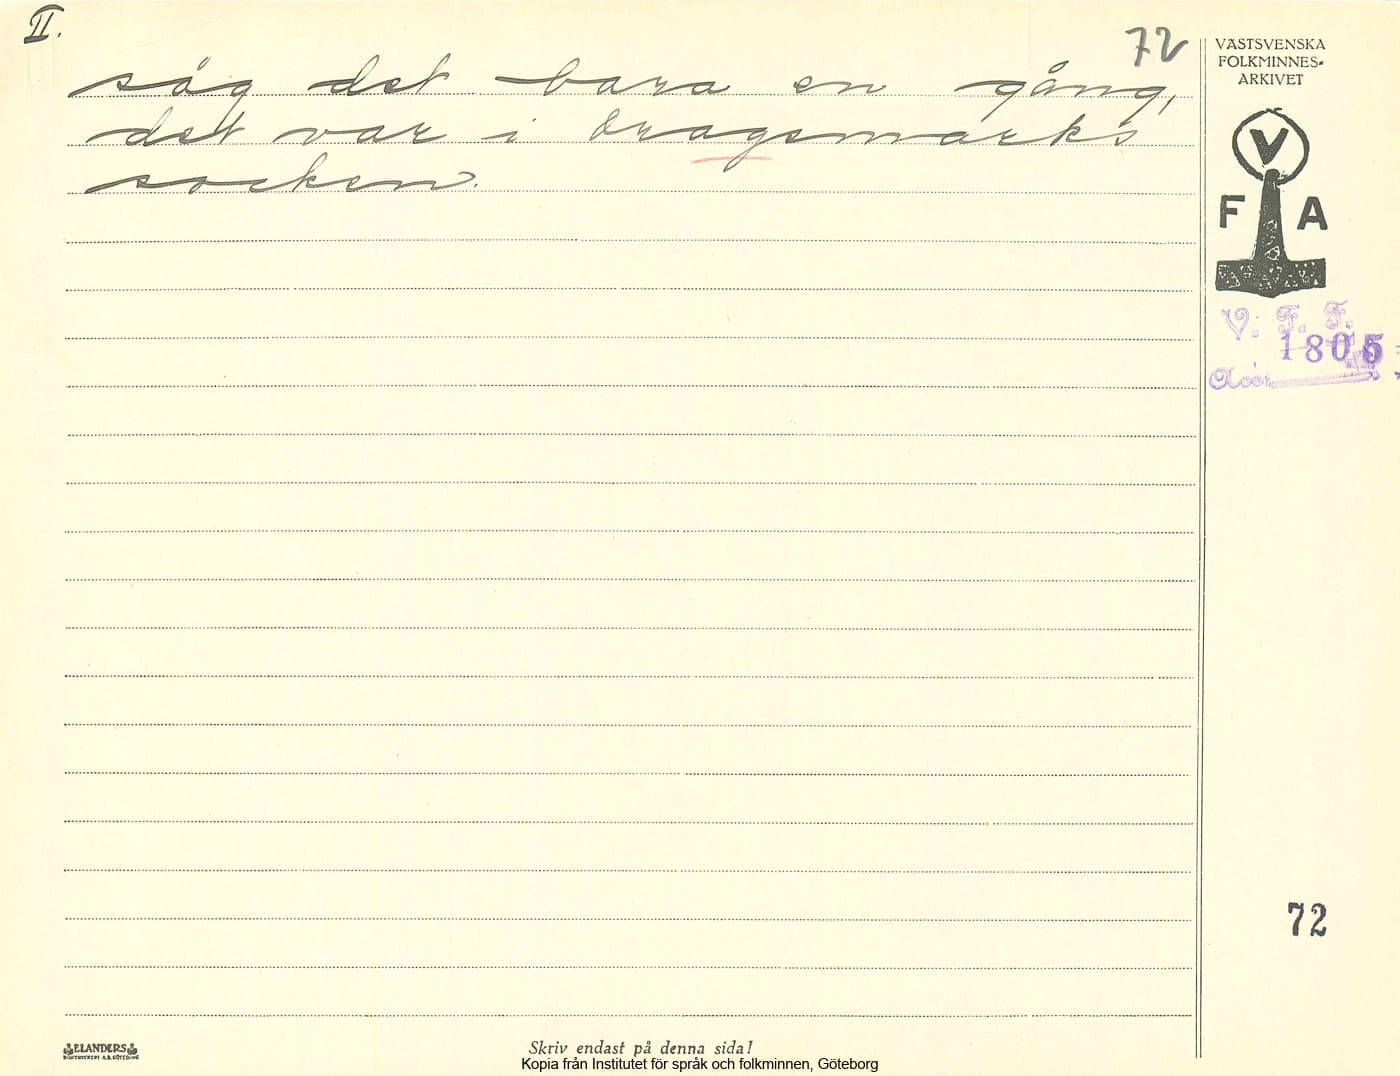 II.
72
såg det bara en gång,
det var i Dragsmarks
socken.
VÄSTSVENSKA
FOLKMINNES-
ARKIVET
V
F A
V. F. F.
1805
Acc.
72
ELANDERS
BOKTRYCKERI A.B. GÖTEBORG
Skriv endast på denna sida!
Kopia från Institutet för språk och folkminnen, Göteborg